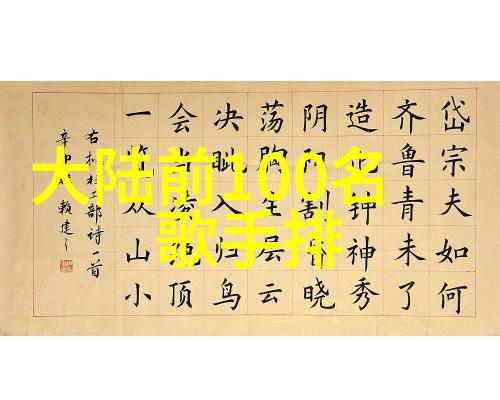 大陆前100名
歌手排
岱宗夫如何
齐鲁青未了
造化钟神秀
阴阳割昏晓
荡胸生层云
决眦入归鸟
会当凌绝顶
一览众山小
右杜工部诗一首
辛卯赖建